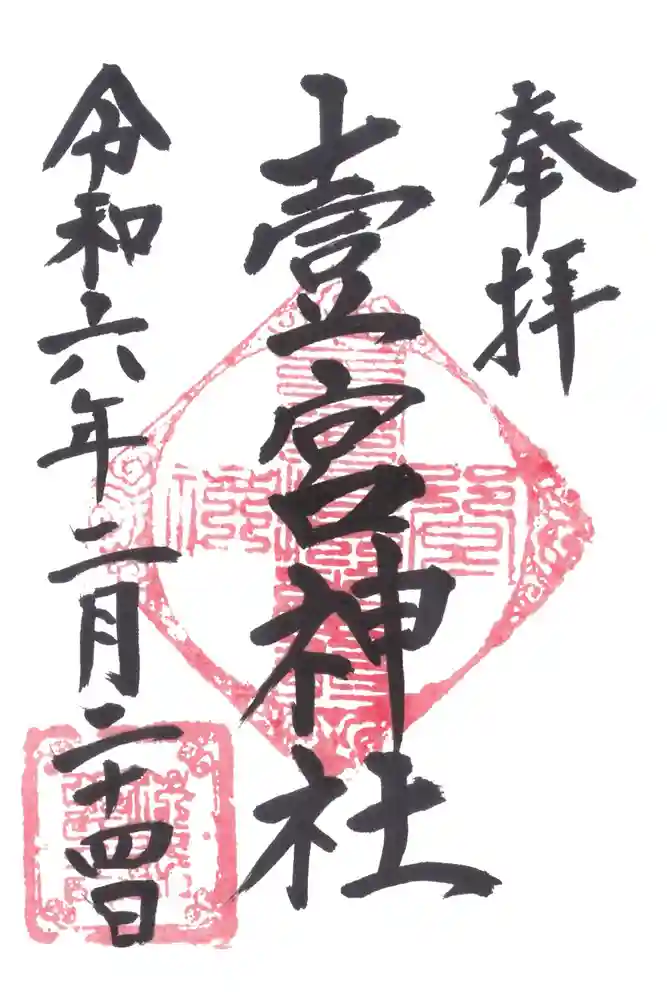 奉拝
壹宮神社
令和六年二月二十四日